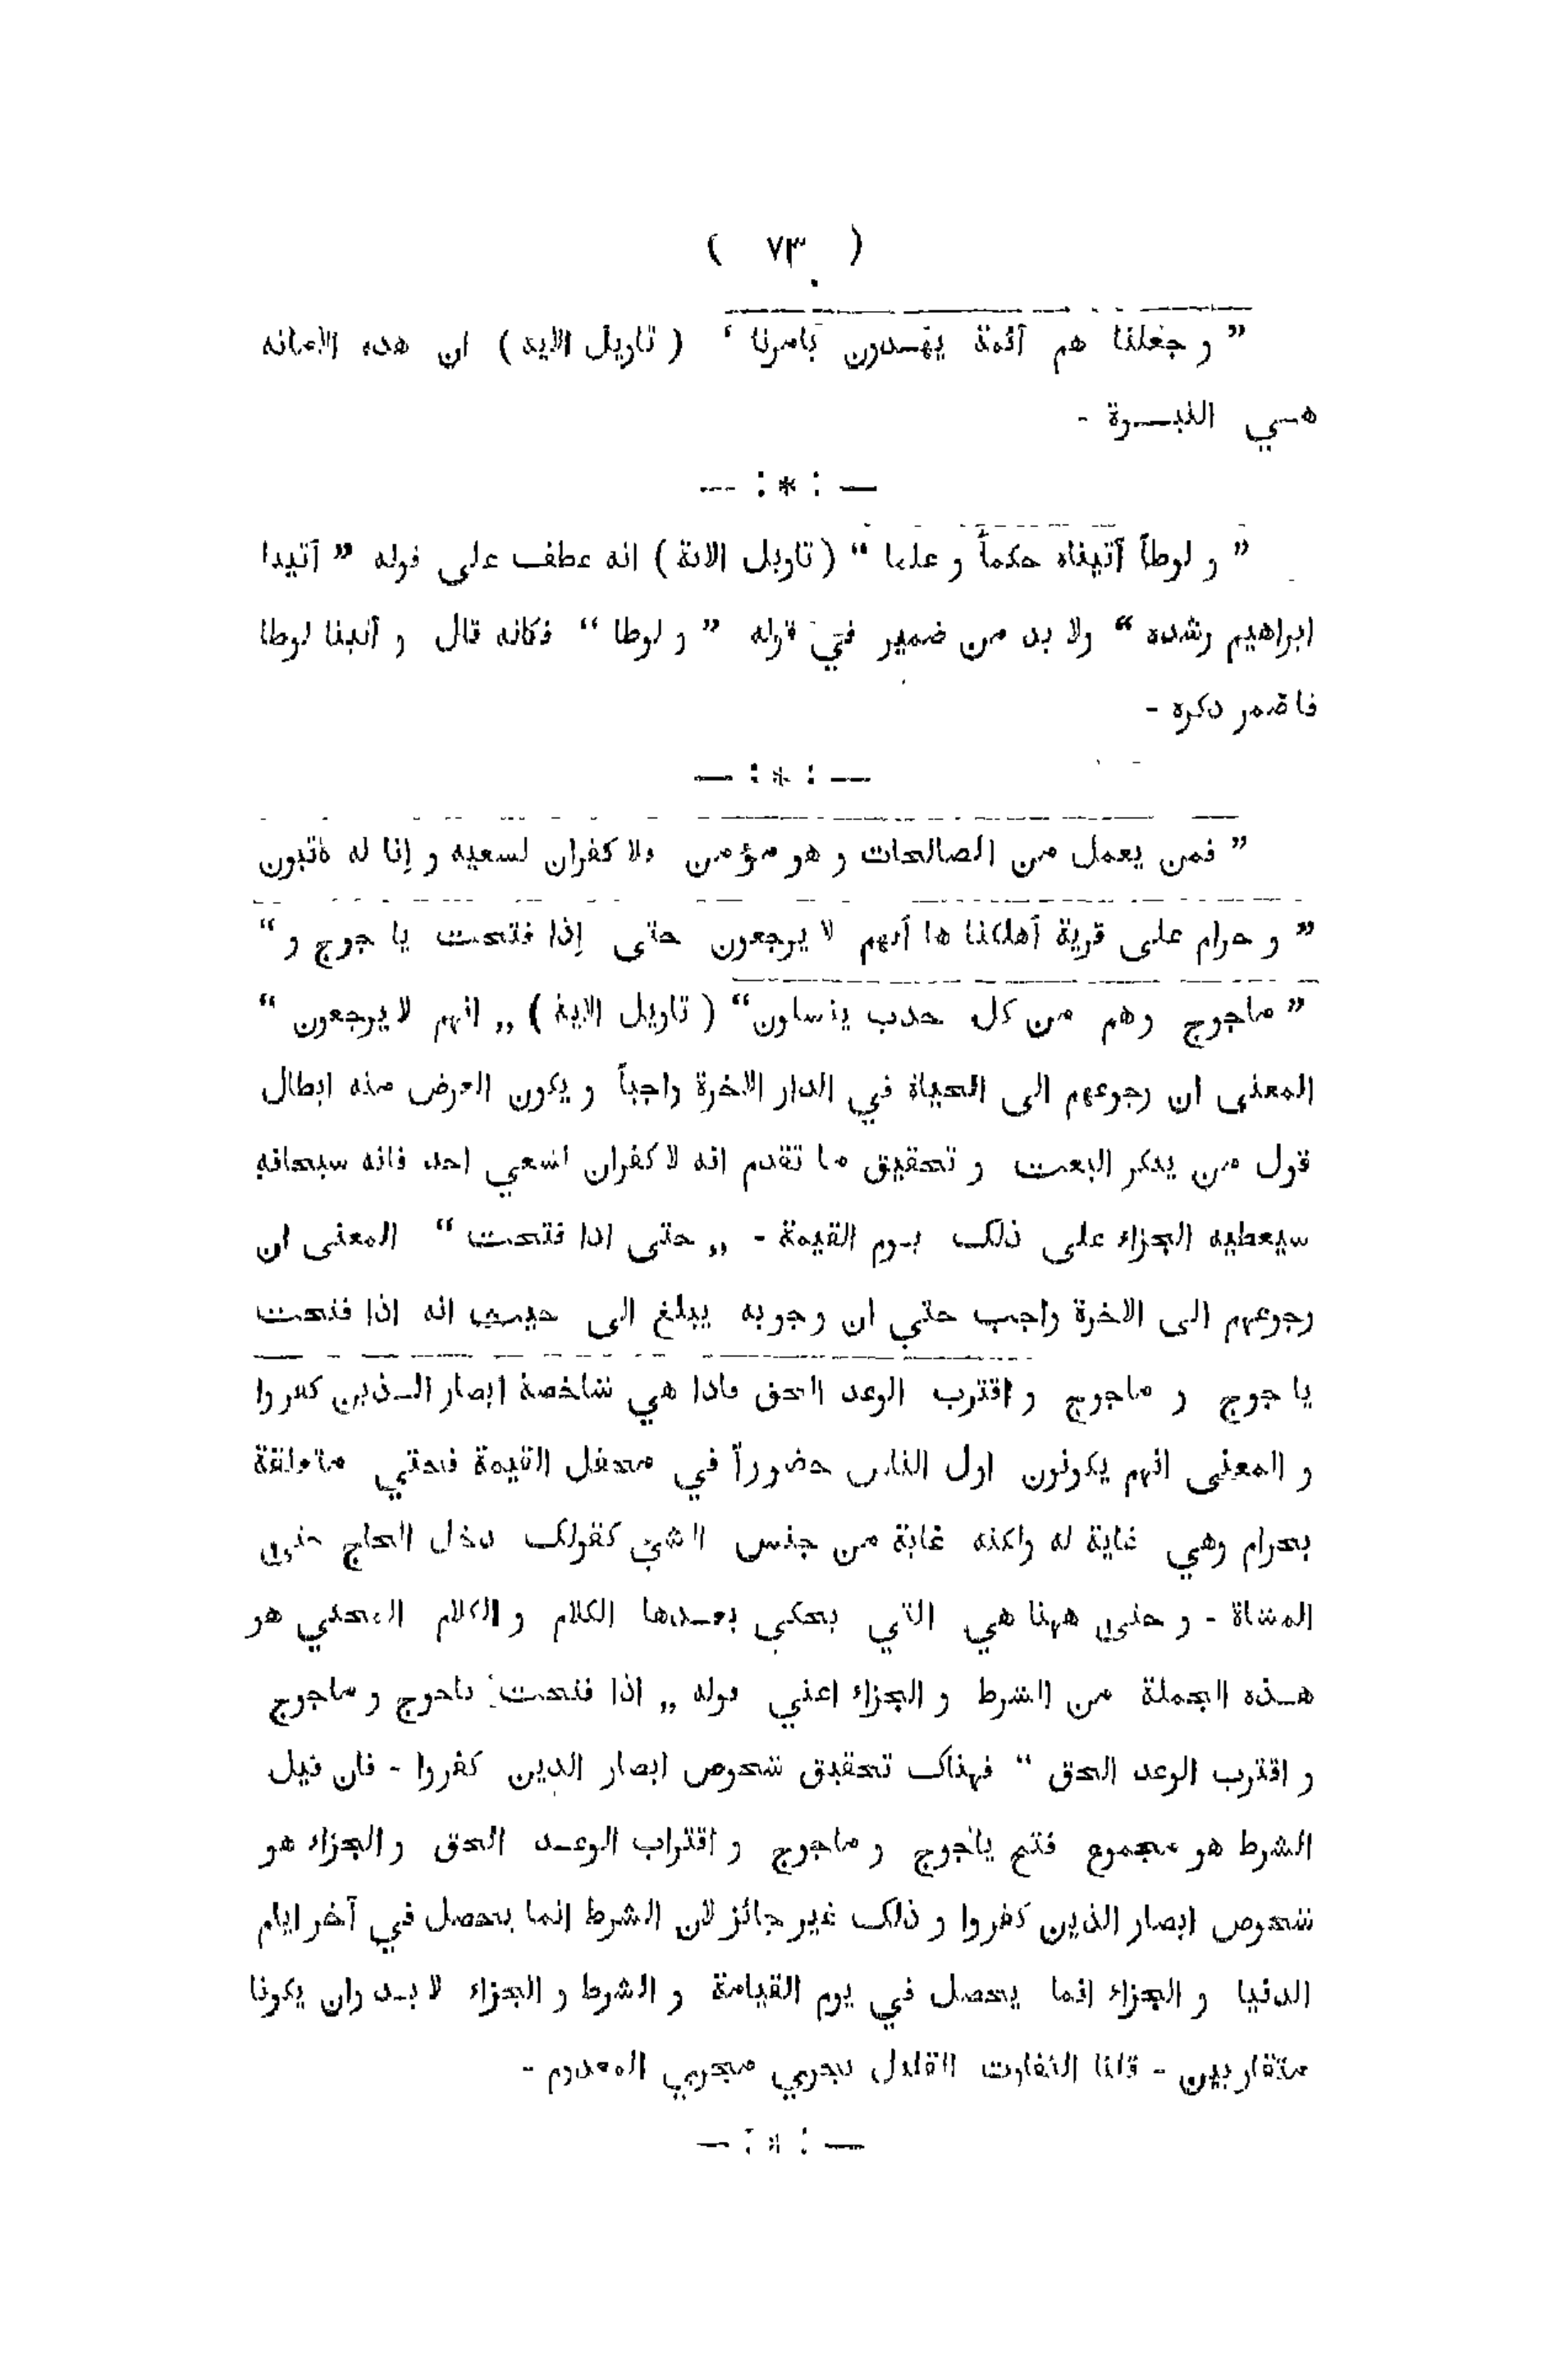 ( ٧٣ )
” و جعلنا هم آئمة يهـدون بامرنا ‘ ( تاويل الايه ) ان هذه الامانه
هـي النبـــوة -
— : * : —
” و لوطاً آتيناه حكماً و علما “ ( تاويل الاية ) انه عطف على قوله ” آتينا
ابراهيم رشده “ ولا بد من ضمير في قوله ” و لوطا “ فكانه قال و آتينا لوطا
فاضمر ذكره -
— : * : —
” فمن يعمل من الصالحات و هو مؤمن فلا كفران لسعيه و إنا له كاتبون
” و حرام على قرية أهلكنا ها أنهم لا يرجعون حتى إذا فتحت يا جوج و “
” ماجوج وهم من كل حدب ينسلون“ ( تاويل الاية ) ,, انهم لا يرجعون “
المعنى ان رجوعهم الى الحياة في الدار الاخرة واجباً و يكون الغرض منه ابطال
قول من ينكر البعث و تحقيق ما تقدم انه لا كفران لسعي احد فانه سبحانه
سيعطيه الجزاء على ذلك يـوم القيمة - ,, حتى اذا فتحت “ المعنى ان
رجوعهم الى الاخرة واجب حتي ان وجوبه يبلغ الى حيث انه اذا فتحت
يا جوج و ماجوج و اقترب الوعد الحق فاذا هي شاخصة ابصار الـذين كفروا
و المعنى انهم يكونون اول الناس حضوراً في محفل القيمة فحتي متعلقة
بحرام وهي غاية له ولكنه غاية من جنس الشي كقولك دخل الحاج حتى
المشاة - و حتى ههنا هي التي يحكى بعـدها الكلام و الكلام المحكي هو
هـذه الجملة من الشرط و الجزاء اعني قوله ,, اذا فتحت ياجوج و ماجوج
و اقترب الوعد الحق “ فهناك تحقيق شخوص ابصار الذين كفروا - فان قيل
الشرط هو مجموع فتح ياجوج و ماجوج و اقتراب الوعـد الحق و الجزاء هو
شخوص ابصار الذين كفروا و ذلك غير جائز لان الشرط انما يحصل في آخر ايام
الدنيا و الجزاء انما يحصل في يوم القيامة و الشرط و الجزاء لا بـد وان يكونا
متقاربين - قلنا التفاوت القليل يجري مجرى المعدوم -
— : * : —